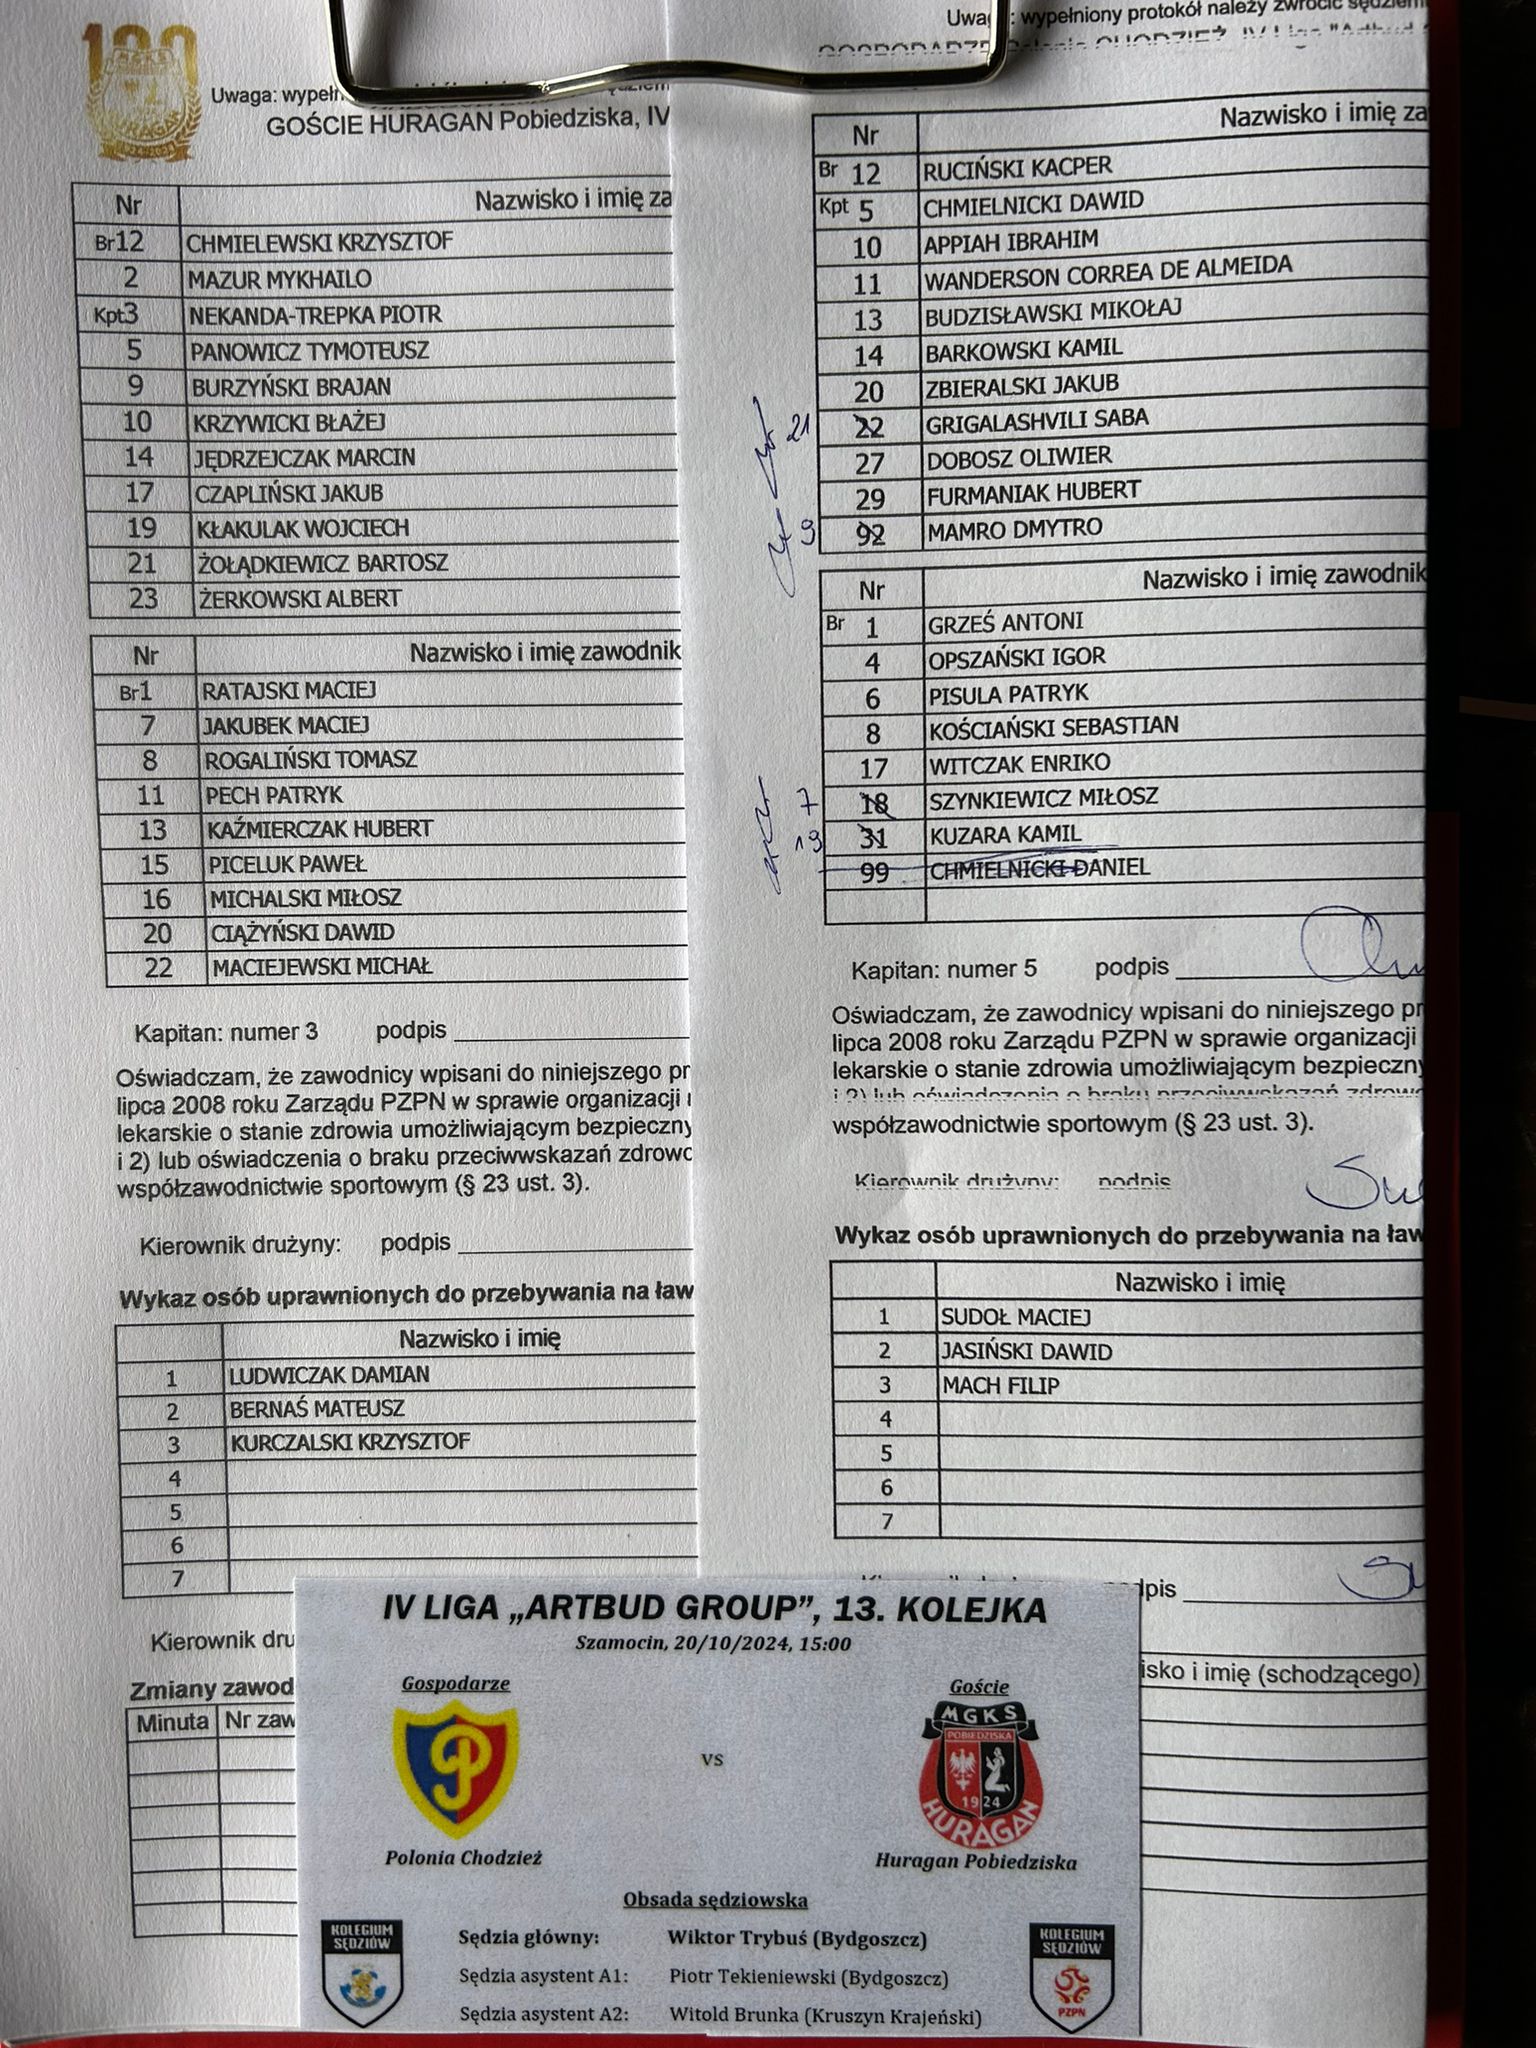 100
HURAGAN
1924-2024
Uwaga: wypełn
GOŚCIE HURAGAN Pobiedziska, IV
Nr Nazwisko i imię za
Br 12 CHMIELEWSKI KRZYSZTOF
2 MAZUR MYKHAILO
Kpt 3 NEKANDA-TREPKA PIOTR
5 PANOWICZ TYMOTEUSZ
9 BURZYŃSKI BRAJAN
10 KRZYWICKI BŁAŻEJ
14 JĘDRZEJCZAK MARCIN
17 CZAPLIŃSKI JAKUB
19 KŁAKULAK WOJCIECH
21 ŻOŁĄDKIEWICZ BARTOSZ
23 ŻERKOWSKI ALBERT
Nr Nazwisko i imię zawodnik
Br 1 RATAJSKI MACIEJ
7 JAKUBEK MACIEJ
8 ROGALIŃSKI TOMASZ
11 PECH PATRYK
13 KAŹMIERCZAK HUBERT
15 PICELUK PAWEŁ
16 MICHALSKI MIŁOSZ
20 CIĄŻYŃSKI DAWID
22 MACIEJEWSKI MICHAŁ
Kapitan: numer 3 podpis
Oświadczam, że zawodnicy wpisani do niniejszego pr
lipca 2008 roku Zarządu PZPN w sprawie organizacji
lekarskie o stanie zdrowia umożliwiającym bezpieczny
i 2) lub oświadczenia o braku przeciwwskazań zdrowo
współzawodnictwie sportowym (§ 23 ust. 3).
Kierownik drużyny: podpis
Wykaz osób uprawnionych do przebywania na ław
Nazwisko i imię
1 LUDWICZAK DAMIAN
2 BERNAŚ MATEUSZ
3 KURCZALSKI KRZYSZTOF
4
5
6
7
Kierownik dru
Zmiany zawod
Minuta Nr zaw
Uwa : wypełniony protokół należy zwrócić sędziem
GOSPODARZE Polonia CHODZIEŻ, IV Liga "Artbud
Nr Nazwisko i imię za
Br 12 RUCIŃSKI KACPER
Kpt 5 CHMIELNICKI DAWID
10 APPIAH IBRAHIM
11 WANDERSON CORREA DE ALMEIDA
13 BUDZISŁAWSKI MIKOŁAJ
14 BARKOWSKI KAMIL
20 ZBIERALSKI JAKUB
21 22 GRIGALASHVILI SABA
27 DOBOSZ OLIWIER
29 FURMANIAK HUBERT
9 92 MAMRO DMYTRO
Nr Nazwisko i imię zawodnik
Br 1 GRZEŚ ANTONI
4 OPSZAŃSKI IGOR
6 PISULA PATRYK
8 KOŚCIAŃSKI SEBASTIAN
17 WITCZAK ENRIKO
7 18 SZYNKIEWICZ MIŁOSZ
19 31 KUZARA KAMIL
99 CHMIELNICKI DANIEL
Kapitan: numer 5 podpis
Oświadczam, że zawodnicy wpisani do niniejszego pr
lipca 2008 roku Zarządu PZPN w sprawie organizacji
lekarskie o stanie zdrowia umożliwiającym bezpieczny
i 2) lub oświadczenia o braku przeciwwskazań zdrowo
współzawodnictwie sportowym (§ 23 ust. 3).
Kierownik drużyny: podpis
Wykaz osób uprawnionych do przebywania na ław
Nazwisko i imię
1 SUDOŁ MACIEJ
2 JASIŃSKI DAWID
3 MACH FILIP
4
5
6
7
dpis
isko i imię (schodzącego)
IV LIGA „ARTBUD GROUP”, 13. KOLEJKA
Szamocin, 20/10/2024, 15:00
Gospodarze Goście
P
vs
MGKS
POBIEDZISKA
1924
HURAGAN
Polonia Chodzież Huragan Pobiedziska
Obsada sędziowska
KOLEGIUM SĘDZIÓW
Sędzia główny: Wiktor Trybuś (Bydgoszcz)
Sędzia asystent A1: Piotr Tekieniewski (Bydgoszcz)
Sędzia asystent A2: Witold Brunka (Kruszyn Krajeński)
KOLEGIUM SĘDZIÓW
PZPN